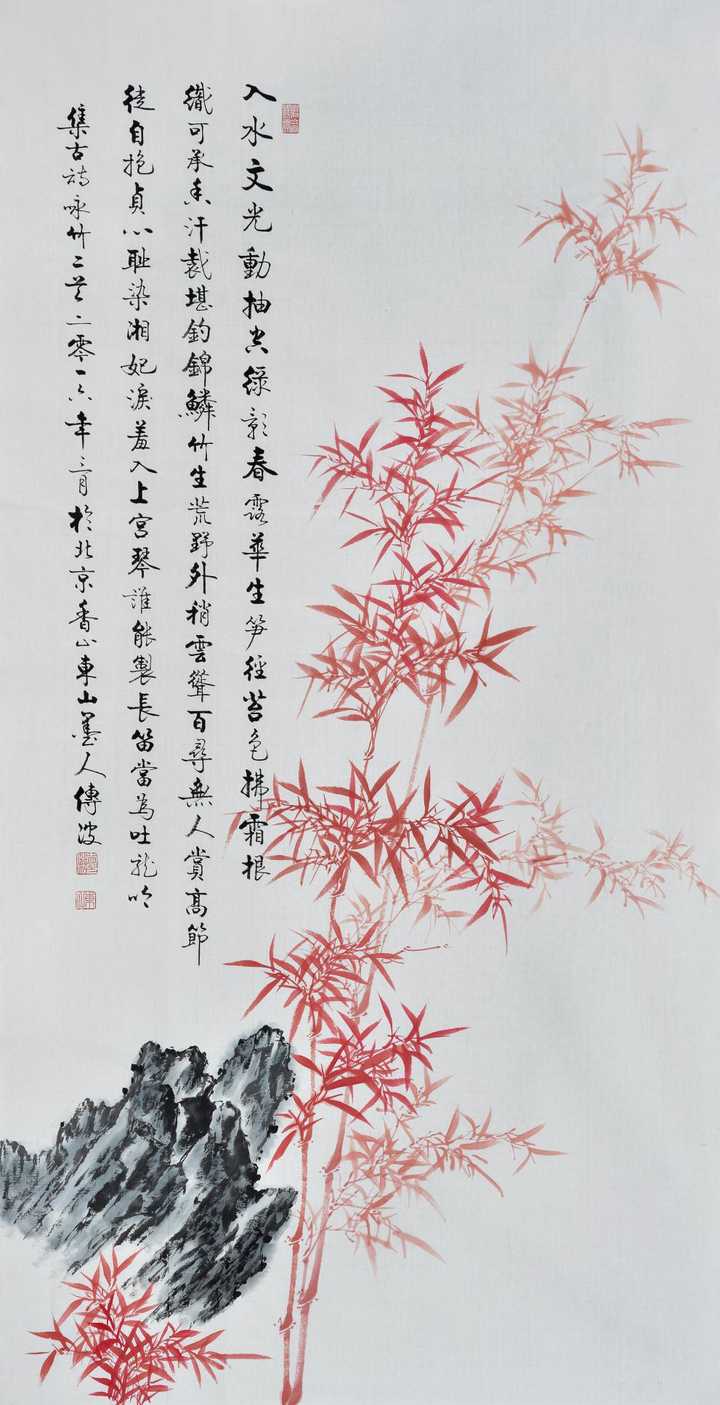 入水文光動抽空綠影春露華生笋徑苔色拂霜根
織可承香汗裁堪釣錦鱗竹生荒野外梢雲聳百尋無人賞高節
徒自抱貞心耻染湘妃淚羞入上宮琴誰能製長笛當為吐龍吟
集古詩咏竹二首二零一六年三月於北京香山東山墨人傳波